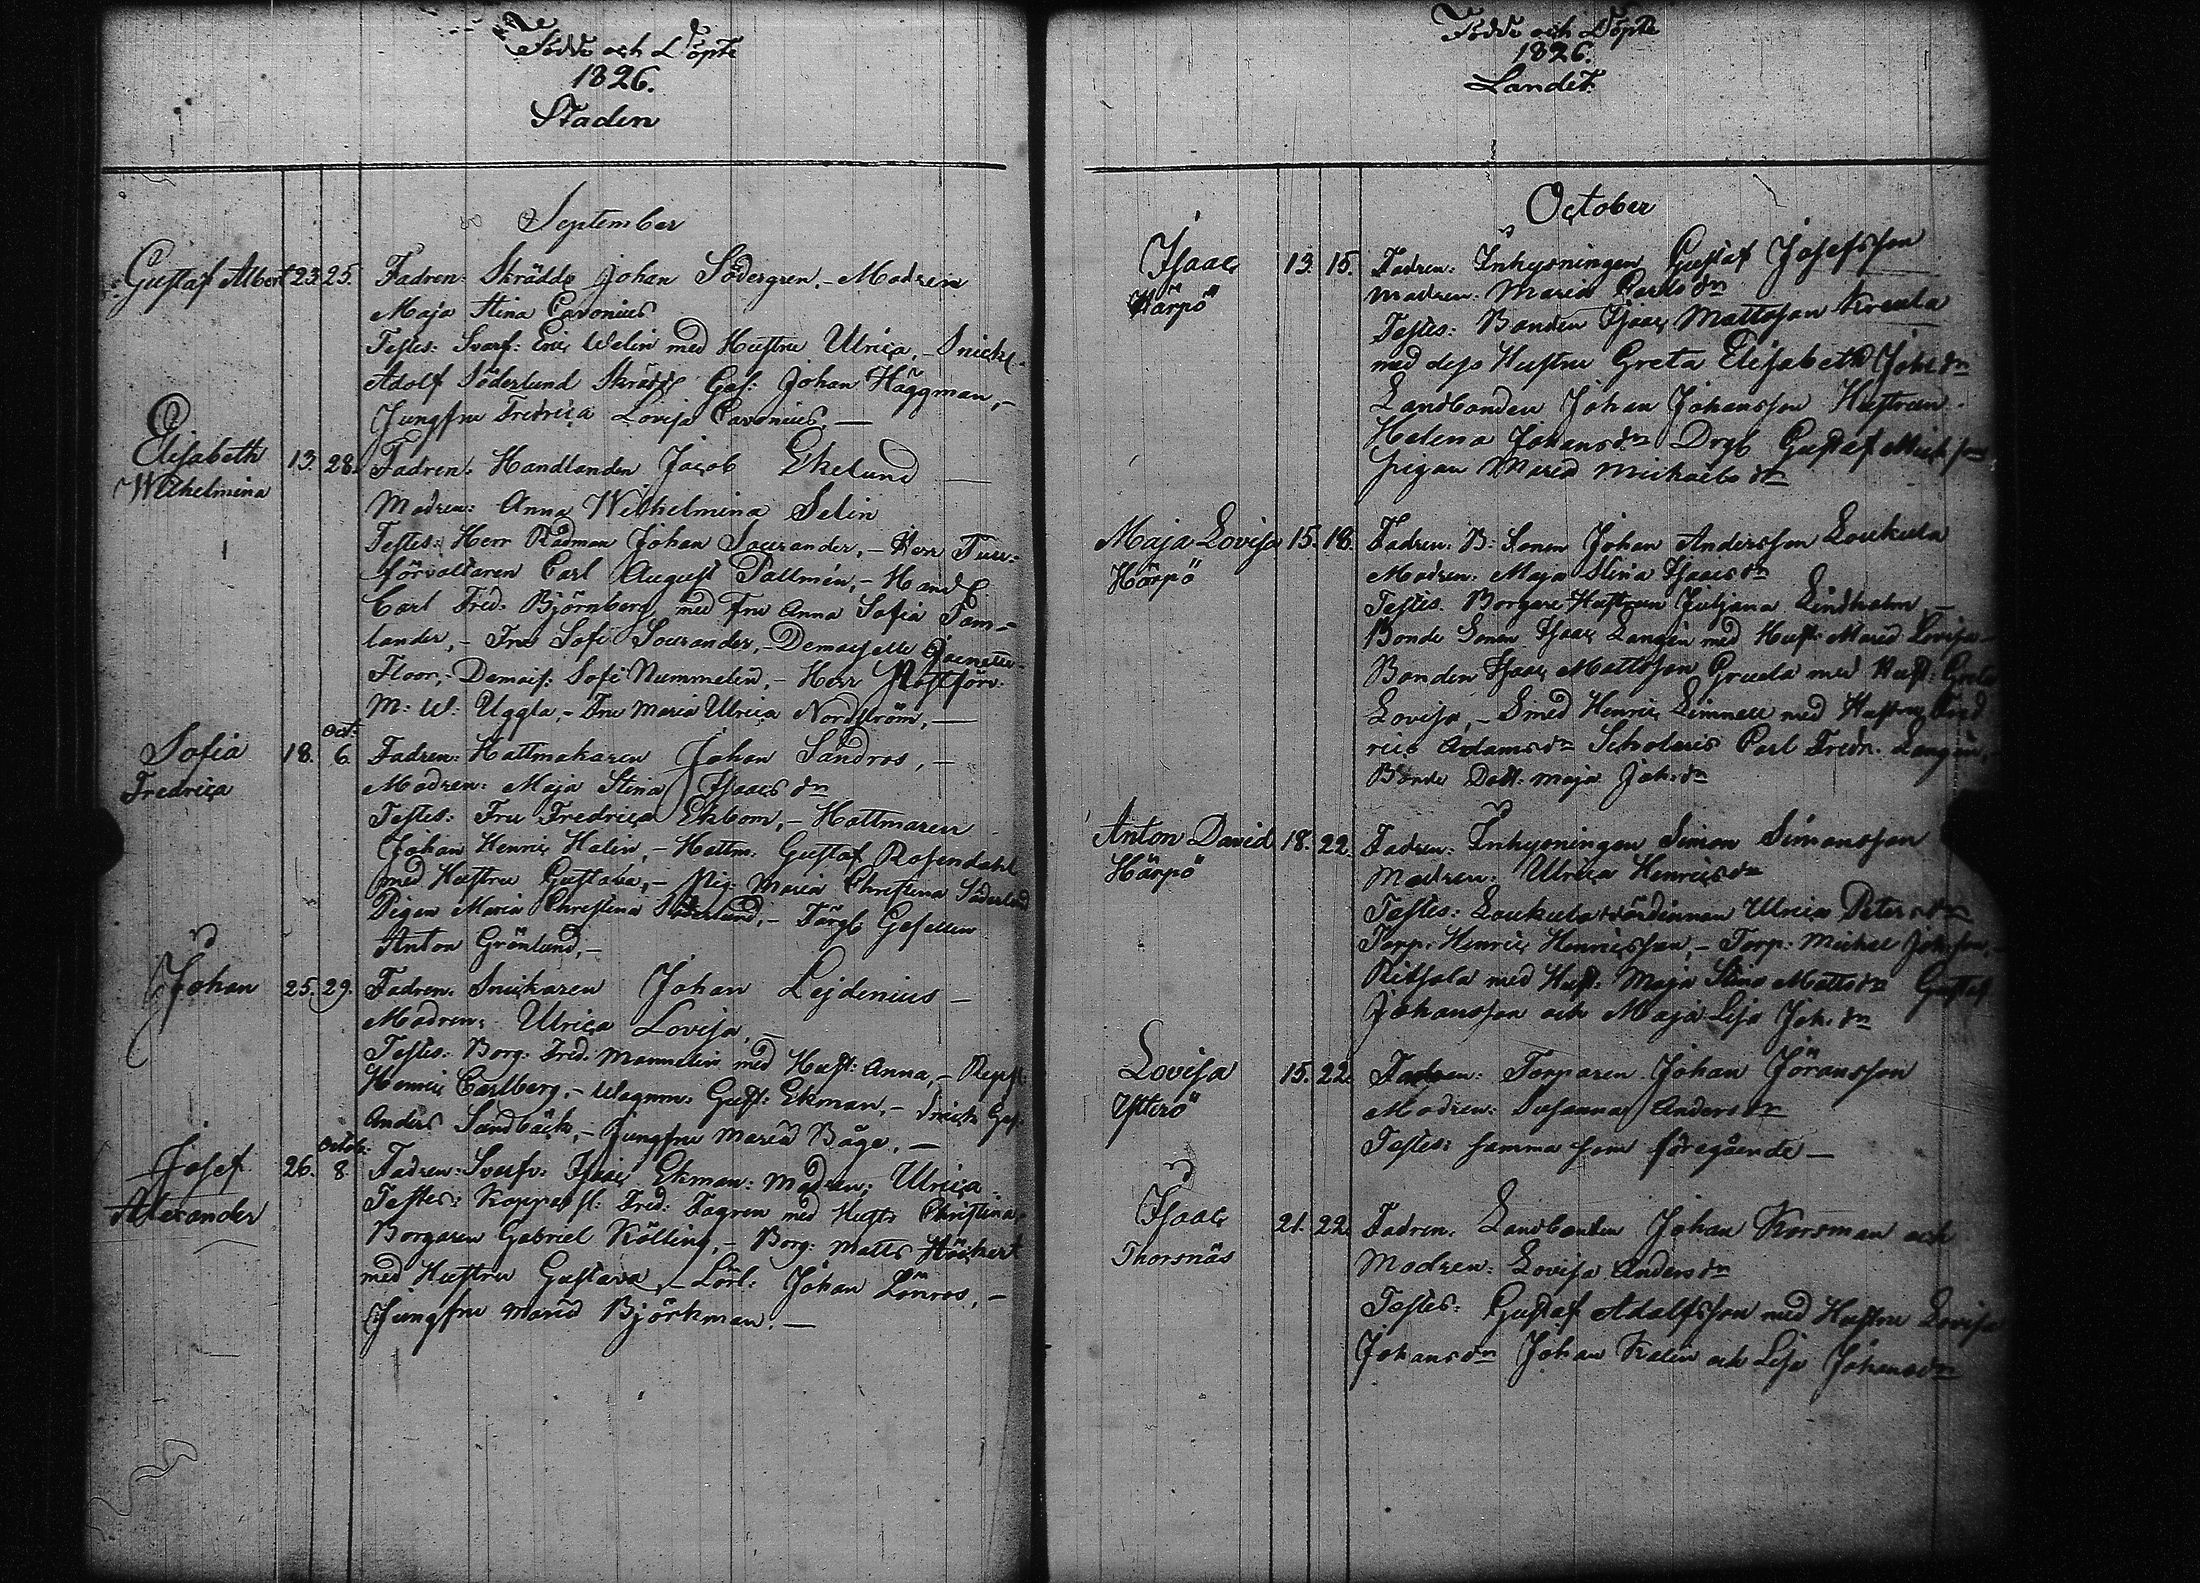 Födde och Döpte
1826.
Staden
September
Gustaf Albert 23. 25. Fadren: Skrädd: Johan Södergren, - Modren
Maja Stina Cavonius
Testes: Svarf: Eric Welin med Hustru Ulrica, - Snick:
Adolf Söderlund Skrädd: Ges: Johan Häggman, -
Jungfru Fredrica Lovisa Cavonius. -
Elisabeth Wilhelmina 13. 28. Fadren: Handlanden Jacob Ekelund
Modren: Anna Wilhelmina Selin
Testes: Herr Rådman Johan Sourander, - Herr Tull-
förvaltaren Carl August Pallmén, - Handl.
Carl Fred: Björnberg med Fru Anna Sofia Pom-
lander, - Fru Sofi Sourander, - Demoiselle Jeanette
Floor, - Demois: Sofi Nummelin, - Herr Postförv:
M: W: Uggla, - Fru Maria Ulrica Nordström, -
Sofia Fredrica 18. Oct: 6. Fadren: Hattmakaren Johan Sandros, -
Modren: Maja Stina Isaacsdr
Testes: Fru Fredrica Ekbom, - Hattmaren
Johan Henric Halin, - Hattm: Gustaf Rosendahl
med Hustru Gustava, - Pig: Maria Christina Söderlund
Pigan Maria Christina Söderlund, - Färg: Gesellen
Anton Grönlund, -
Johan 25. 29. Fadren: Snickaren Johan Lejdenius -
Modren: Ulrica Lovisa, -
Testes: Borg: Fred. Mannelin med Hust: Anna, - Repsl:
Henric Carlberg, - Wagnm: Gust: Ekman, - Snick: Ges:
Anders Sandbäck, - Jungfru Maria Båge, -
Josef Alexander 26. Octob: 8. Fadren: Svarfv: Isaac Ekman: Modren: Ulrica
Testes: Kopparsl: Fred: Fagren med Hustr Christina,
Borgaren Gabriel Kölling, - Borg: Matts Höckert
med Hustru Gustava, - Lärl: Johan Lönros, -
Jungfru Maria Björkman. -
Födde och Döpte
1826.
Landet
October
Isaac Härpö 13. 15. Fadren: Inhysningen Gustaf Josefsson
Modren: Maria Carlsdr
Testes: Bonden Isaac Mattsson Kreula
med dess Hustru Greta Elisabeth Joh:dr
Landbonden Johan Johansson Hustrun
Helena Johansdr Drg Gustaf Mich:son
pigan Maria Michaelsdr
Maja Lovisa Härpö 15. 18. Fadren: B: Sonen Johan Andersson Loukula
Modren: Maja Stina Isaacsdr
Testes. Borgare Hustrun Juljana Lindholm
Bonde Sonen Isaac Langén med Hust: Maria Lovisa -
Bonden Isaac Mattsson Greula med Hust: Greta
Lovisa, - Smed Henric Limnell med Hustru Fred
rica Adamsdr Scholaris Carl Fredr. Langén,
Bonde Dott: Maja Joh:dr
Anton David Härpö 18. 22. Fadren: Inhysningen Simon Simonsson
Modren: Ulrica Henricsdr
Testes: Loukula Wärdinnan Ulrica Petersdr
Torp: Henric Henricsson, - Torp: Michel Johsson, -
Ritsala med Hust: Maja Stina Mattsdr Gustaf
Johansson och Maja Lisa Joh:dr
Lovisa Ytterö 15. 22. Fadren: Torparen Johan Jöransson
Modren: Susanna Andersdr
Testes: samma som föregående -
Isaac Thorsnäs 21. 22. Fadren: Landbonden Johan Korsman och
Modren: Lovisa Andersdr
Testes: Gustaf Adolfsson med Hustru Lovisa
Johansdr Johan Kalin och Lisa Johansdr